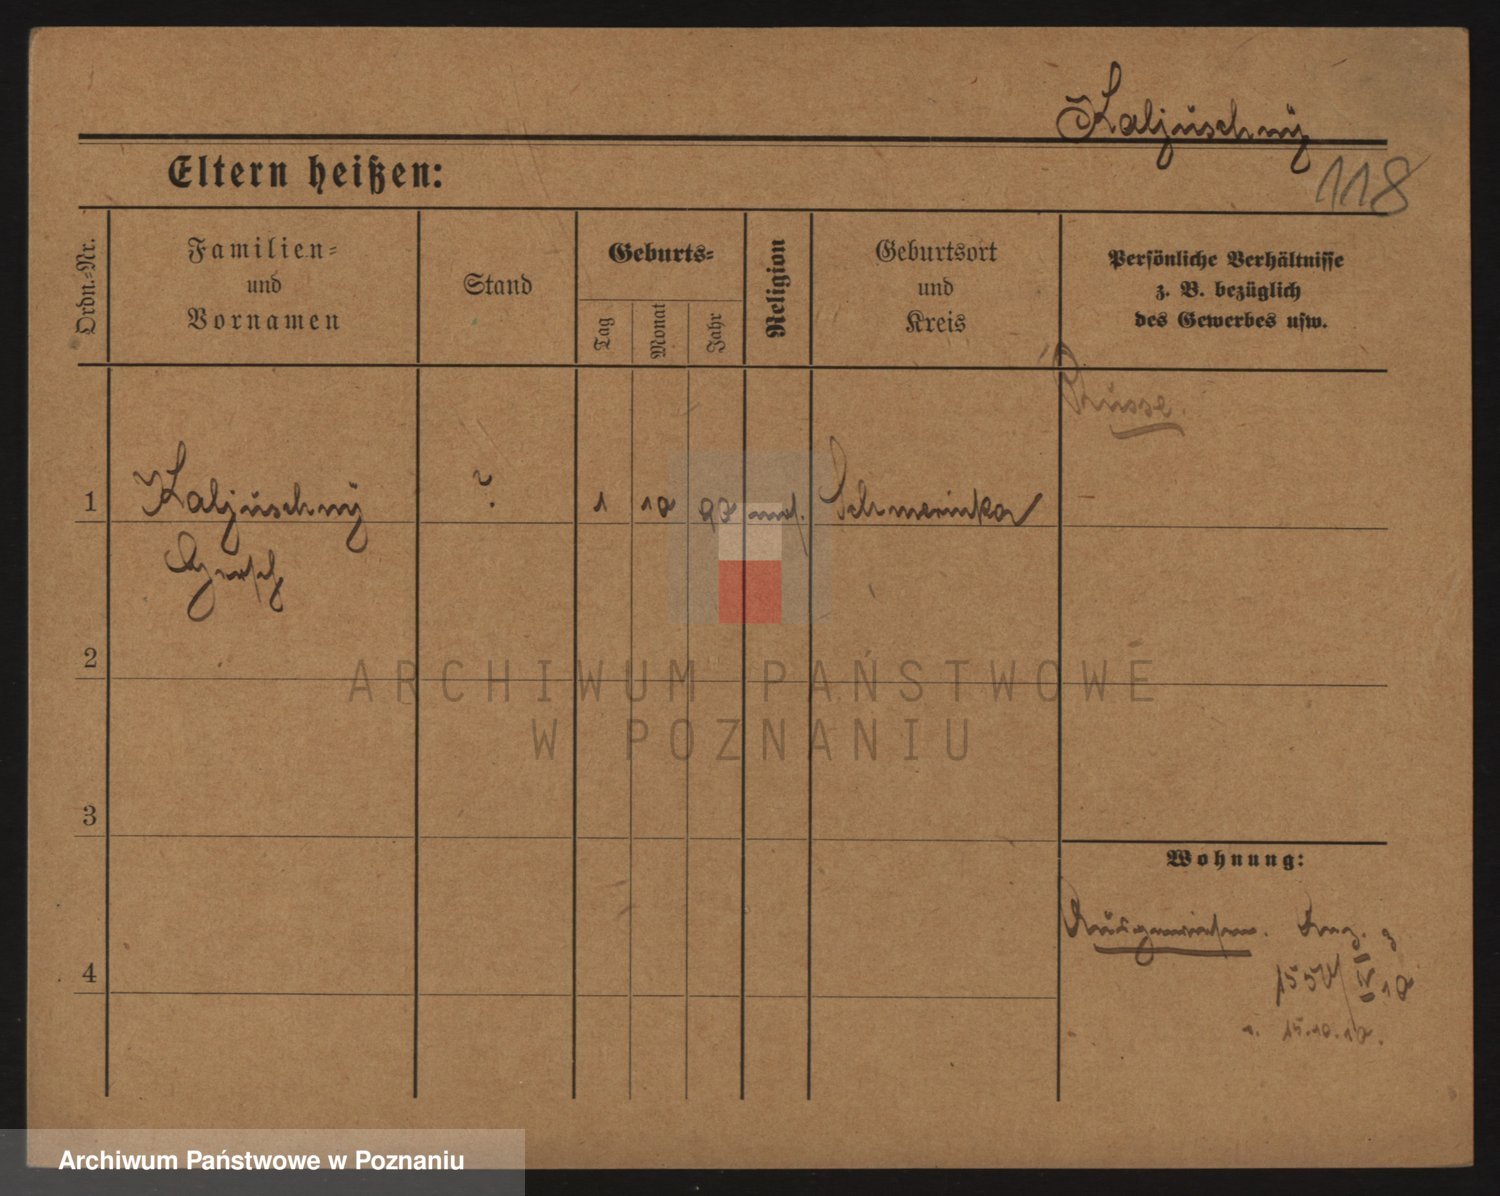 Kaljuschny
118
Eltern heißen:
Ordn.-Nr.
Familien-
und
Vornamen
Stand
Geburts-
Tag
Monat
Jahr
Religion
Geburtsort
und
Kreis
Persönliche Verhältnisse
z. B. bezüglich
des Gewerbes usw.
Russe.
1 Kaljuschny ? 1 10 Schmerinka
2
3
4
Wohnung:
15.10.
ARCHIWUM PAŃSTWOWE
W POZNANIU
Archiwum Państwowe w Poznaniu